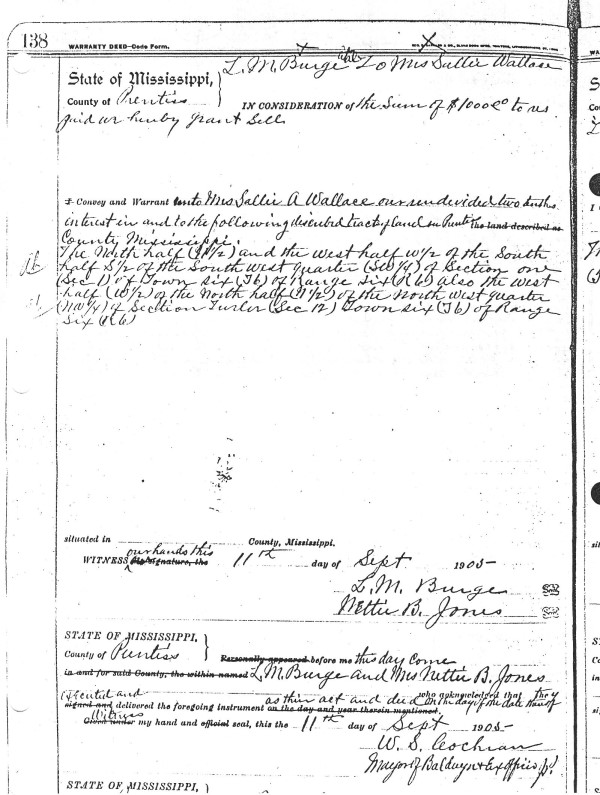 138
WARRANTY DEED—Code Form.
L. M. Burge to Mrs Sallie Wallace
State of Mississippi,
County of Prentiss
IN CONSIDERATION of the sum of $1000.00 to us
paid we hereby grant Sell
& Convey and Warrant unto Mrs Sallie A Wallace our undivided two tenths
interest in and to the following described tracts of land in Prentiss the land described as
County Mississippi.
The North half (N1/2) and the West half W1/2 of the South
half S1/2 of the South West quarter (SW1/4) of Section one
(Sec 1) of Town six (T6) of Range Six (R6) also the West
half (W1/2) of the North half (N1/2) of the North West quarter
(NW1/4) of Section Twelve (Sec 12) Town six (T6) of Range
Six (R6)
situated in County, Mississippi.
our hands this
WITNESS signature, the 11th day of Sept 1905-
L. M. Burge
Nettie B. Jones
STATE OF MISSISSIPPI,
County of Prentiss
Personally appeared before me this day come
in and for said County, the within named L. M. Burge and Mrs Nettie B. Jones
who acknowledged that they
executed and as their act and deed on the day of the date thereof
signed and delivered the foregoing instrument on the day and year therein mentioned.
Witness
Given under my hand and official seal, this the 11th day of Sept 1905-
W. S. Cochran
Mayor of Baldwyn & Ex Officio J.P.
STATE OF MISSISSIPPI,